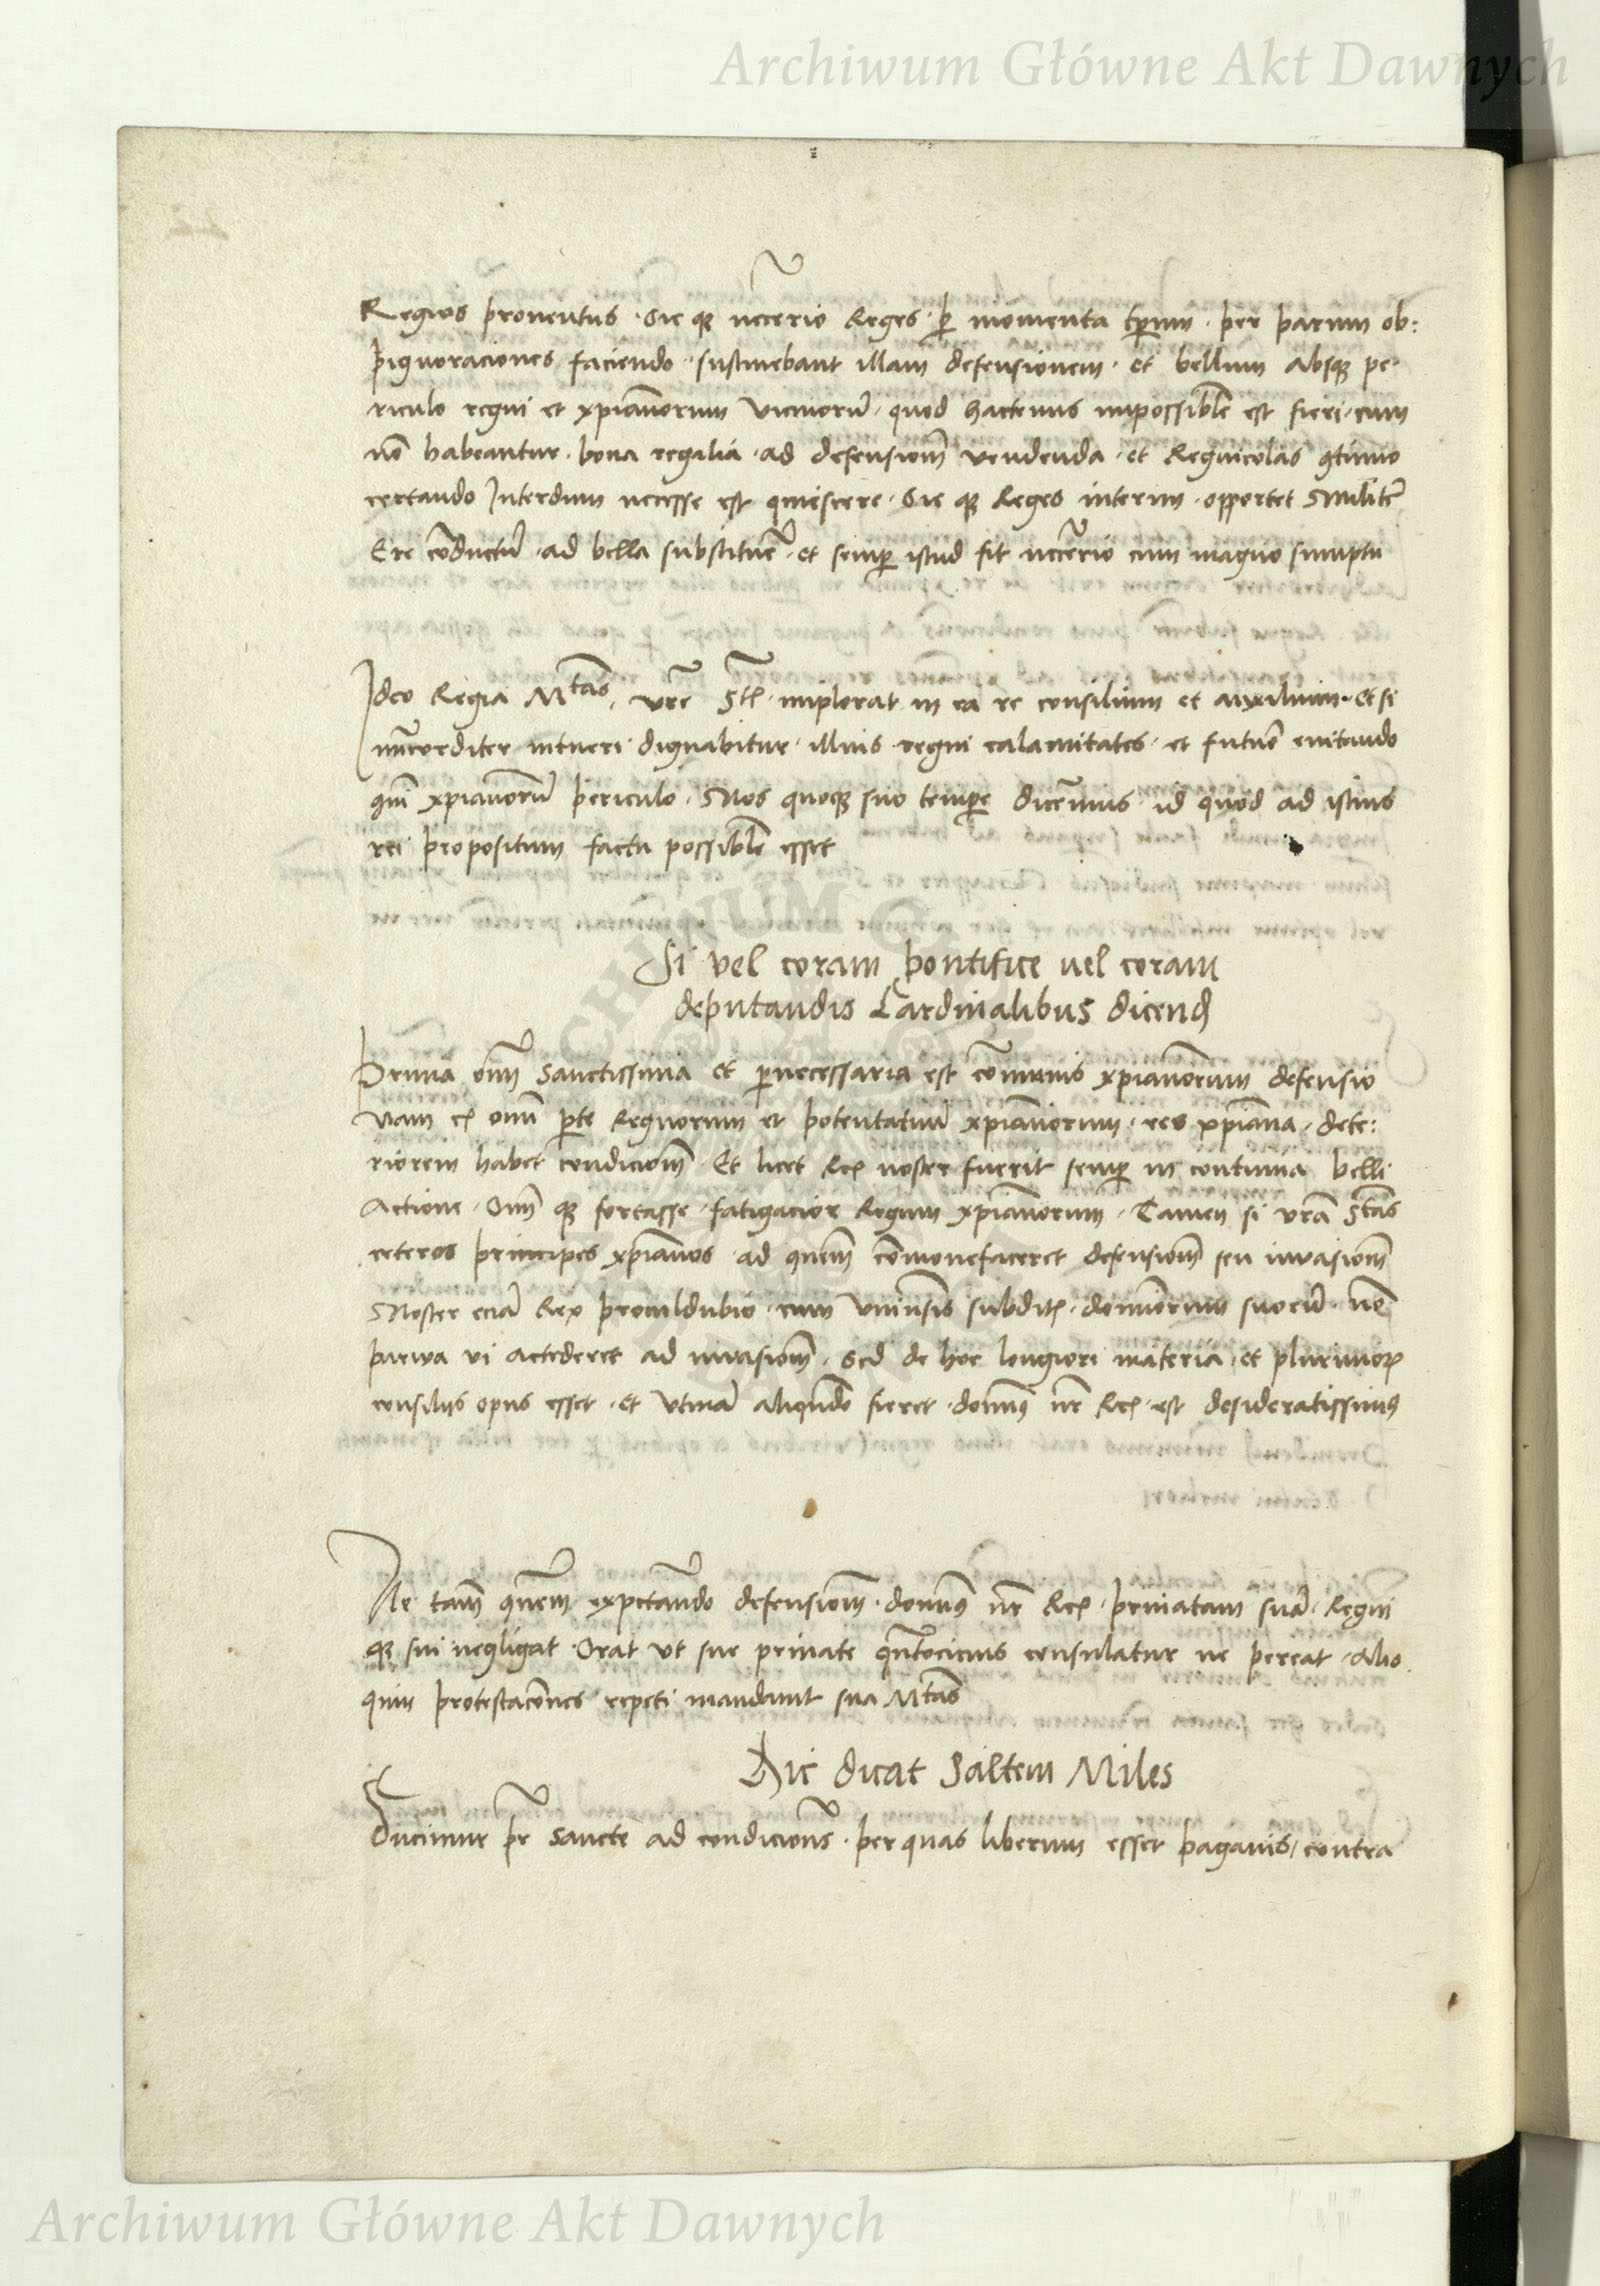 Archiwum Główne Akt Dawnych
Regios proventus · Sic q₃ necẽrio Reges · ꝑ momenta tp̃rum · per parum ob:
pignoraciones faciendo · sustinebant illam defensionem · et bellum absq₃ pe-
riculo regni et xpianorum vicinorũ · quod hactenus impossible est fieri · cum
nõ habeantur · bona regalia · ad defensioñ vendenda · et Regnicolas ꝯtinuo
certando Interdum necesse est quiescere · Sic q₃ Reges interim · opportet Militẽ
Ere cõductũ · ad bella substituẽ · et semꝑ istud fit necẽrio cum magno sumptu
Ideo Regia Mtas, vr̃e Stꝭ · implorat in ea re consilium et auxilium · et si
mĩcorditer intueri dignabitur · illius regni calamitates · et futuro evitando
xpianorũ periculo · Nos quoq₃ suo tempe dicemus id quod ad istius
rei propositum factu possible esset
Si vel coram pontifice vel coram
deputandis Cardinalibus dicend
Prima oĩm Sanctissima et ꝑnecessaria est cõmunis xpianorum defensio
nam ex omi pte Regnorum et potentatuum xpianorum · res xpiana · dete:
riorem habet condicioñ · Et licet Rex noster fuerit semꝑ in continua belli
Actione · Oĩm q₃ fortasse · fatigacior Regum xpianorum · Tamen si vra Stas
ceteros principes xpianos · ad cõmonefaceret defensioñ seu invasioñ
Noster eciã Rex proculdubio · cum vniuersis subditꝭ · dominiorum suorũ · nõ
parva vi accederet ad invasioñ · Sed de hoc longiori materia · et plurimoꝝ
consiliis opus esset · et vtinã aliqñdo fieret · domĩꝰ nr̃ Rex · est desideratissimꝰ
Ne tam̃ expectando defensioñ · domĩꝰ nr̃ Rex · privatam suã · Regni
q₃ sui negligat · Orat vt sue private qñtocicius consulatur ne pereat · Alio
quin protestacões repeti mandavit sua Mtas
Hic dicat Saltem Miles
Ducimur pr̃ Sancte ad condicioñs · per quas liberum esset paganis / contra
Archiwum Główne Akt Dawnych